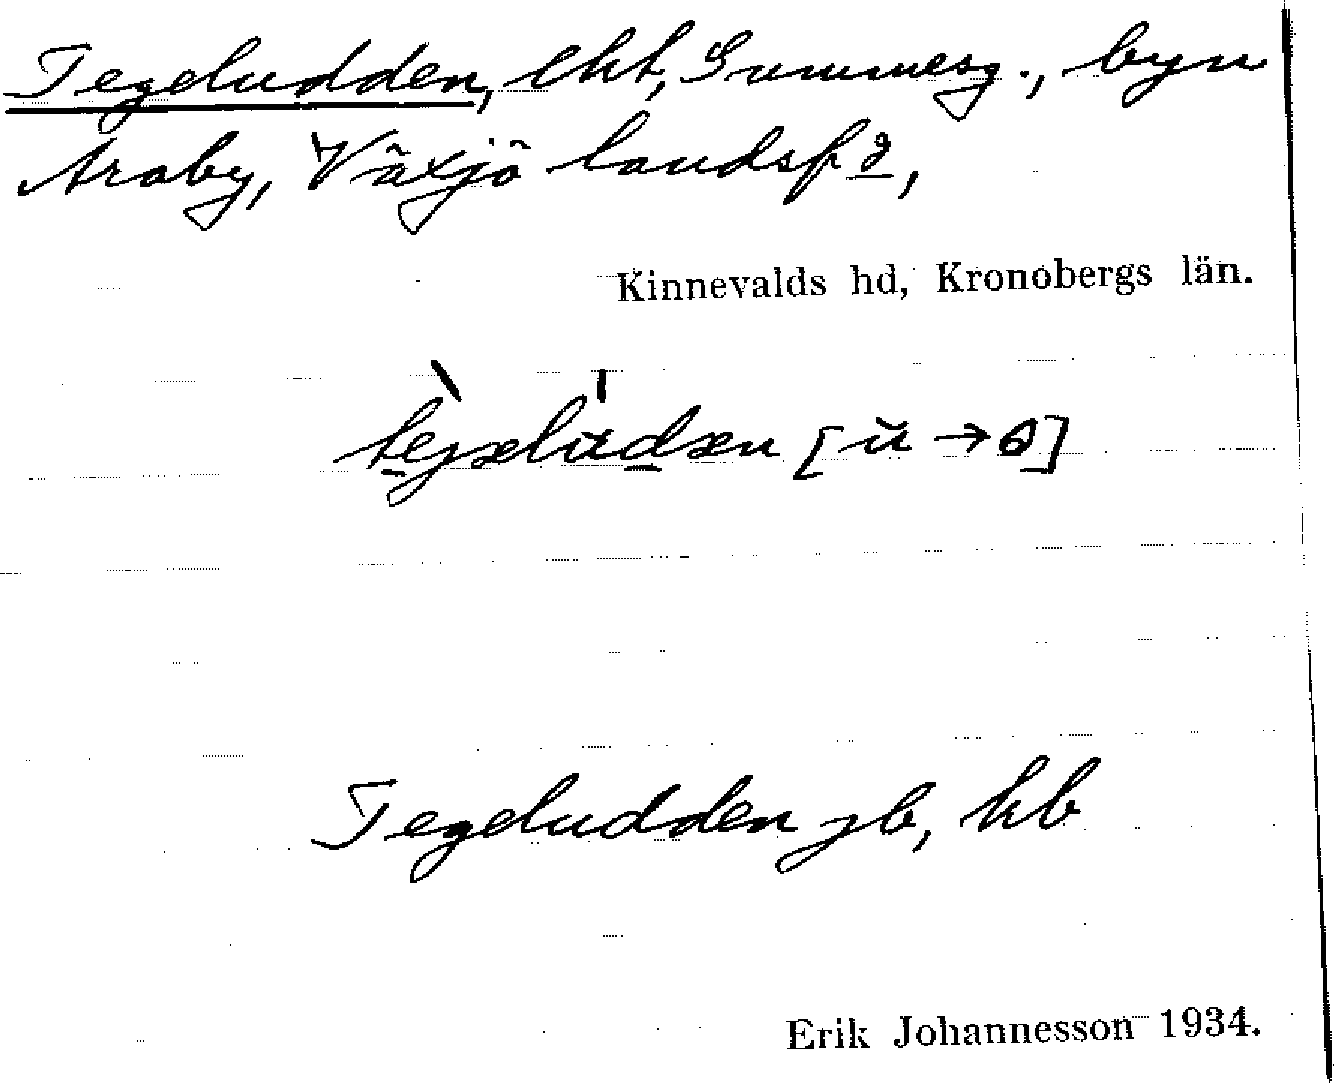 Tegeludden, lht, Gummesg., byn
Araby, Växjö landsf 2,
Kinnevalds hd, Kronobergs län.
[ŭ →
Tegeludden jb, hb
Erik Johannesson 1934.